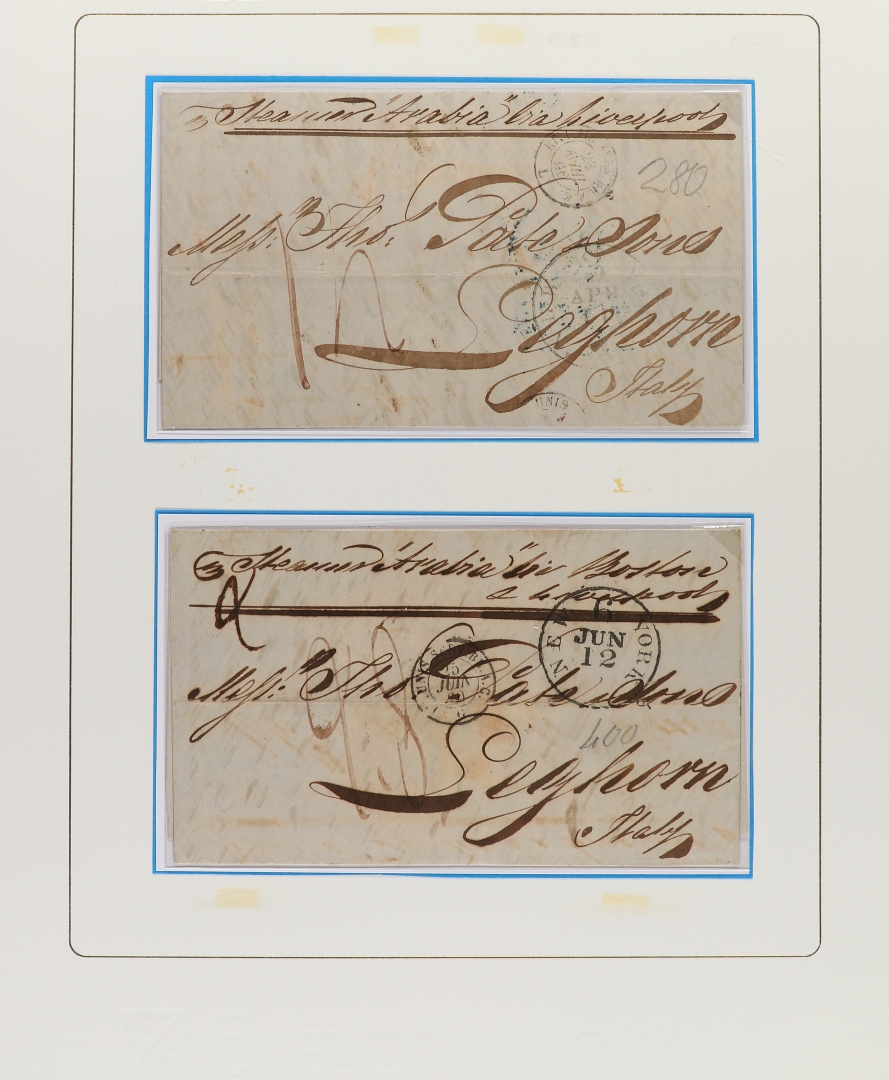 Steamer "Arabia" Via Liverpool
280
Mess.rs Tho.s Pate & Sons
APR
Leghorn
Italy
UNIS
Steamer "Arabia" via Boston
& Liverpool
NEW YORK
6
JUN
12
JUIN
Mess.rs Tho.s Pate & Sons
400
Leghorn
Italy